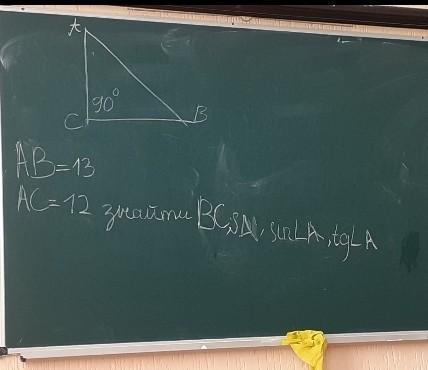 A
90°
C B
AB=13
AC=12 знайти BC, S∆, sin∠A, tg∠A